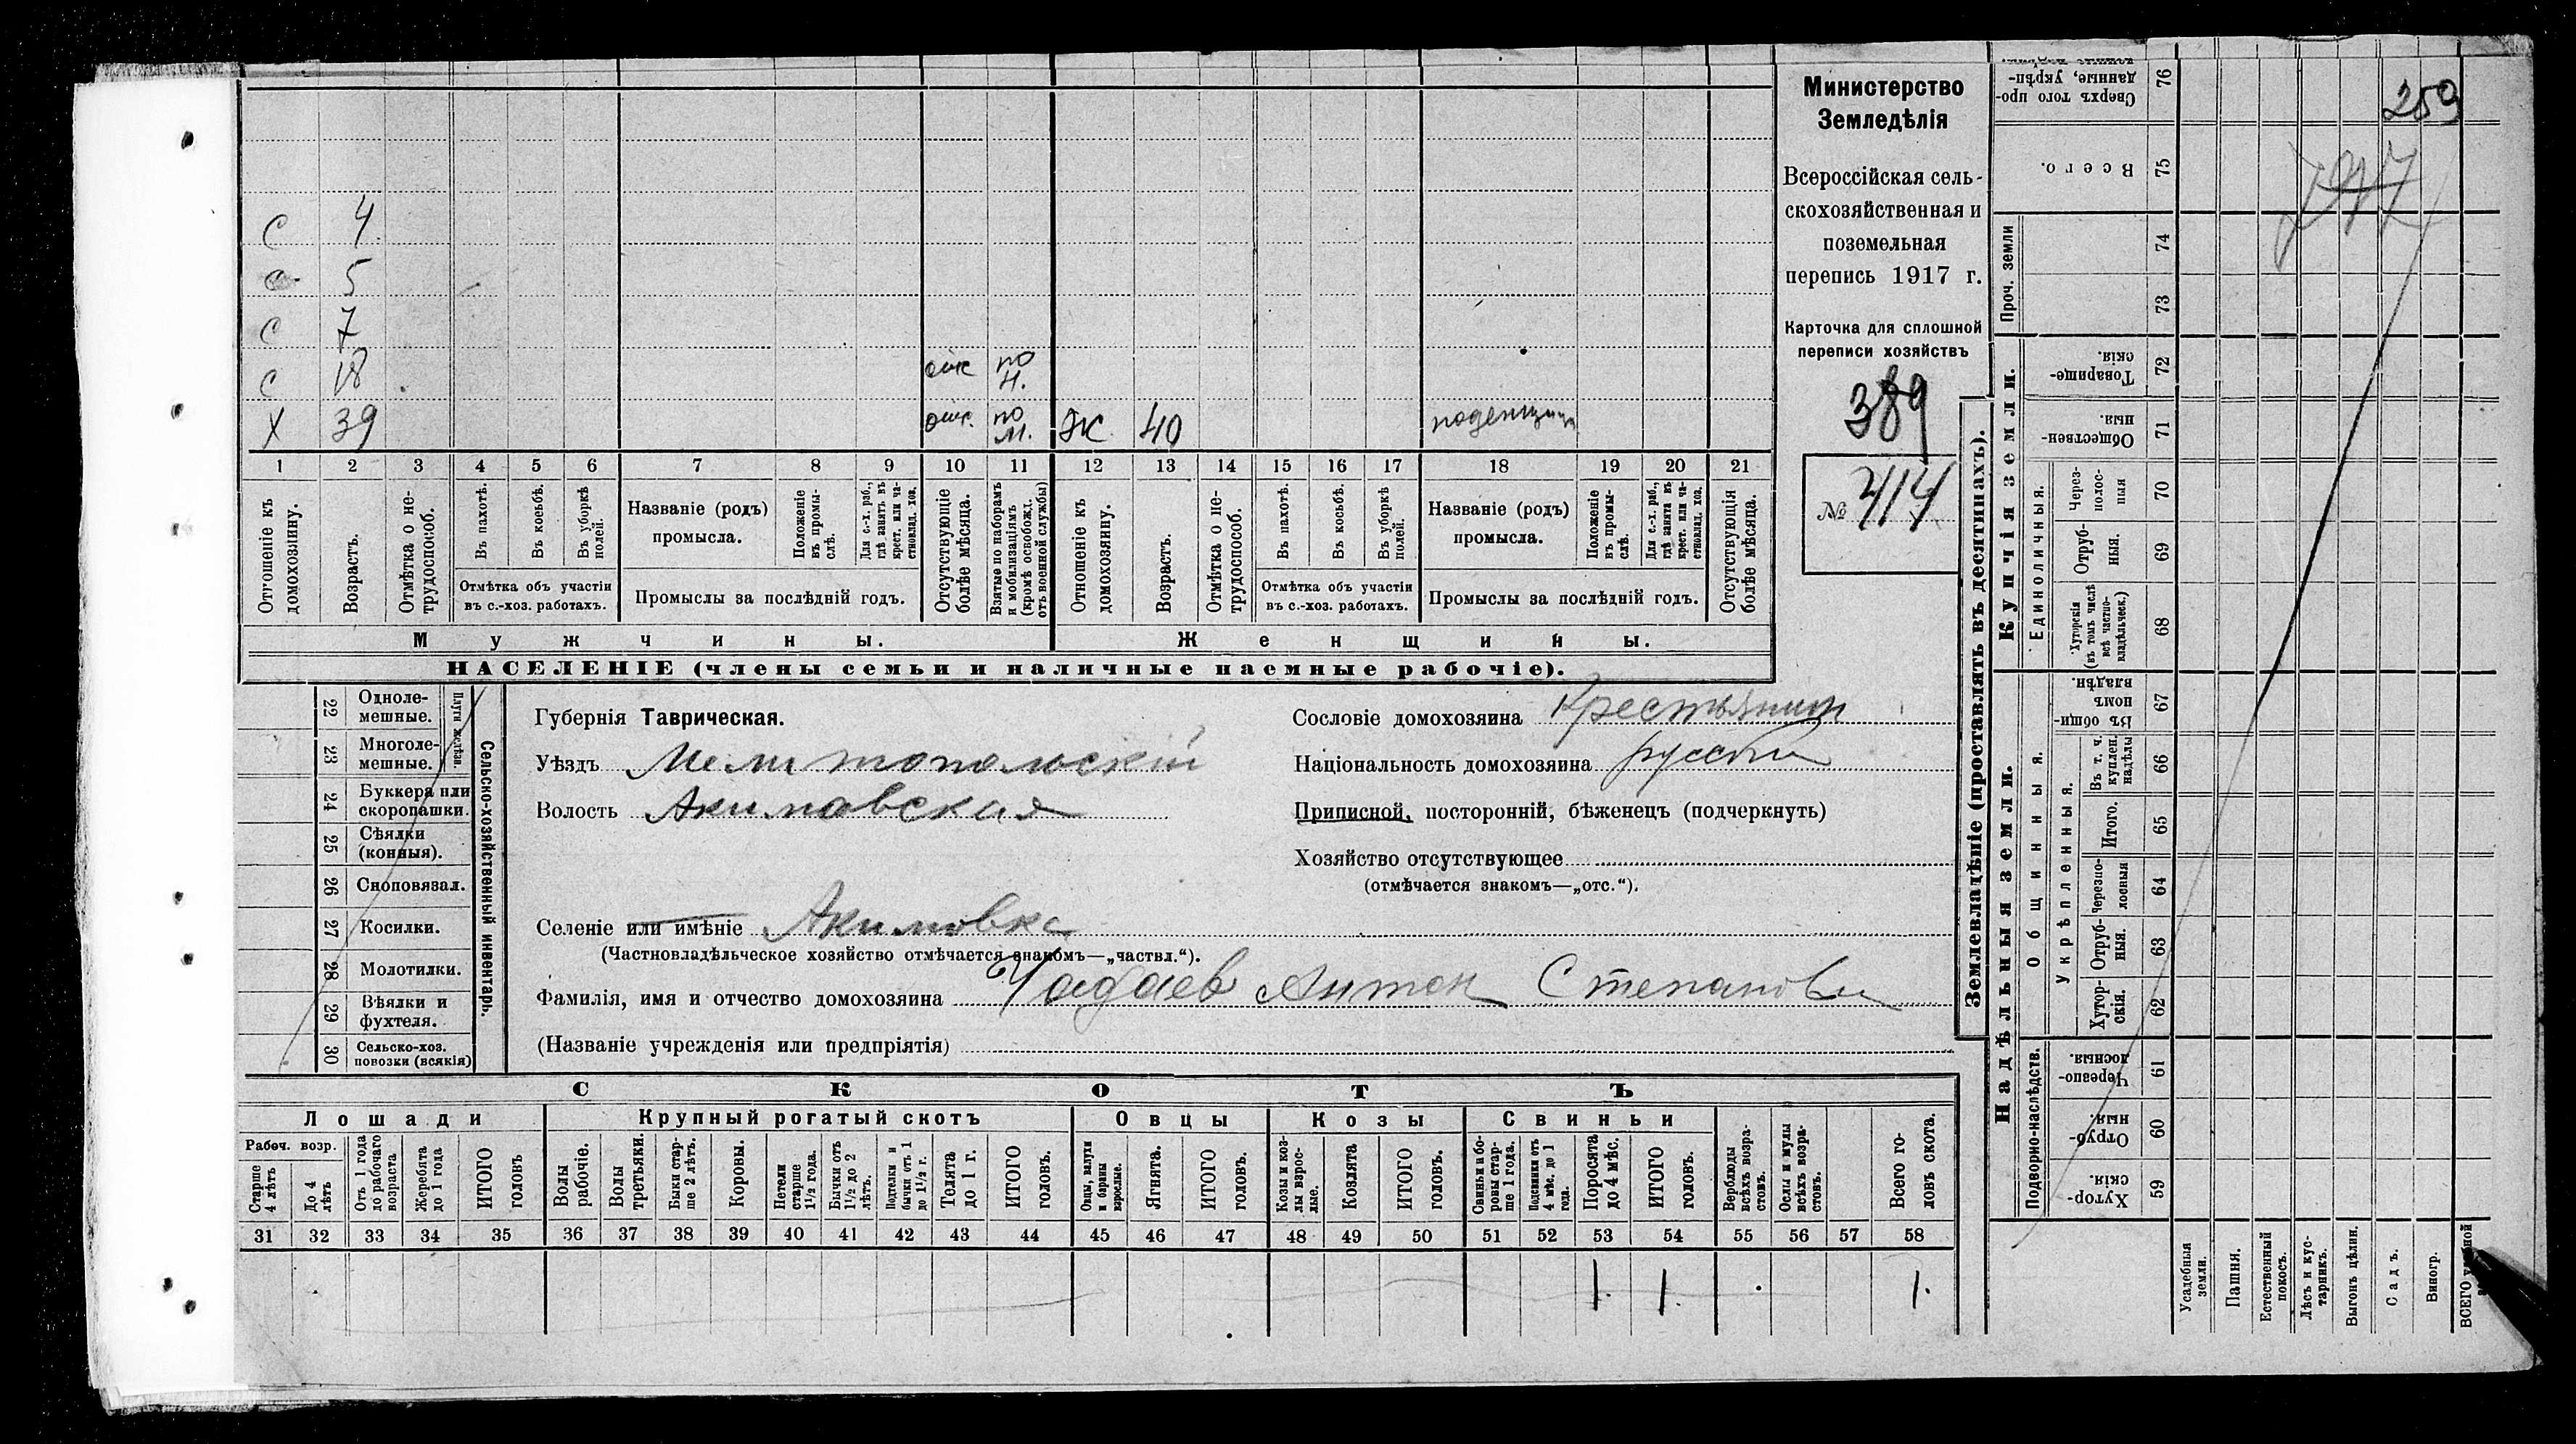 С 4
С 5
С 7
С 18 отс по н.
Х 39 отс. по м. Ж 40 поденщица
1 2 3 4 5 6 7 8 9 10 11 12 13 14 15 16 17 18 19 20 21
Отношеніе къ домохозяину.
Возрастъ.
Отмѣтка о не-трудоспособ.
Въ пахотѣ.
Въ косьбѣ.
Въ уборкѣ полей.
Отмѣтка объ участіи
въ с.-хоз. работахъ.
Названіе (родъ)
промысла.
Положеніе въ промы-слѣ.
Для с.-х. раб., гдѣ занятъ въ крест. или ча-стновлад. хоз.
Промыслы за послѣдній годъ.
Отсутствующіе болѣе мѣсяца.
Взятые по наборамъ и мобилизаціямъ (кромѣ освобожд. отъ военной службы)
Отношеніе къ домохозяину.
Возрастъ.
Отмѣтка о не-трудоспособ.
Въ пахотѣ.
Въ косьбѣ.
Въ уборкѣ полей.
Отмѣтка объ участіи
въ с.-хоз. работахъ.
Названіе (родъ)
промысла.
Положеніе въ промы-слѣ.
Для с.-х. раб., гдѣ занята въ крест. или ча-стновлад. хоз.
Промыслы за послѣдній годъ.
Отсутствующія болѣе мѣсяца.
Мужчины.
Женщины.
НАСЕЛЕНІЕ (члены семьи и наличные наемные рабочіе).
Министерство
Земледѣлія
Всероссійская сель-
скохозяйственная и
поземельная
перепись 1917 г.
Карточка для сплошной
переписи хозяйствъ
389
№ 414
Сельско-хозяйственный инвентарь.
Плуги желѣзн.
22 Одноле-мешные.
23 Многоле-мешные.
24 Буккера или скоропашки.
25 Сѣялки (конныя).
26 Сноповязал.
27 Косилки.
28 Молотилки.
29 Вѣялки и фухтеля.
30 Сельско-хоз. повозки (всякія)
Губернія Таврическая.
Уѣздъ Мелитопольскій
Волость Акимовская
Селеніе или имѣніе Акимовка
(Частновладѣльческое хозяйство отмѣчается знакомъ—„частвл.“).
Фамилія, имя и отчество домохозяина Чабаев Антон Степанови
(Названіе учрежденія или предпріятія)
Сословіе домохозяина Крестьянин
Національность домохозяина русски
Приписной, посторонній, бѣженецъ (подчеркнуть)
Хозяйство отсутствующее
(отмѣчается знакомъ—„отс.“).
СКОТЪ
Лошади
Крупный рогатый скотъ
Овцы
Козы
Свиньи
Рабоч. возр.
Старше 4 лѣтъ
До 4 лѣтъ
Отъ 1 года до рабочаго возраста
Жеребята до 1 года
ИТОГО головъ
Волы рабочіе.
Волы третьяки.
Быки стар-ше 2 лѣтъ.
Коровы.
Нетели старше 1½ года.
Бычки отъ 1½ до 2 лѣтъ.
Подтелки и бычки отъ 1 до 1½ г.
Телята до 1 г.
ИТОГО головъ.
Овцы, валухи и бараны взрослые.
Ягнята.
ИТОГО головъ.
Козы и коз-лы взрос-лые.
Козлята
ИТОГО головъ.
Свиньи и бо-ровы стар-ше 1 года.
Подсвинки отъ 4 мѣс. до 1 года.
Поросята до 4 мѣс.
ИТОГО головъ.
Верблюды всѣхъ возра-стовъ.
Ослы и мулы всѣхъ возра-стовъ.
Всего го-ловъ скота.
31 32 33 34 35 36 37 38 39 40 41 42 43 44 45 46 47 48 49 50 51 52 53 54 55 56 57 58
1. 1. 1.
Землевладѣніе (проставлять въ десятинахъ).
Купчія земли.
Надѣльныя земли.
Единоличныя.
Общинныя.
Укрѣпленныя.
Подворно-наслѣдств.
Проч. земли
76 Сверхъ того про-данные, укрѣп-
75 Всего.
74
73
72 Товарище-скія.
71 Обществен-ныя.
70 Через-полос-ныя
69 Отруб-ныя.
68 Хуторскія (въ томъ числѣ всѣ частно-владѣльческ.)
67 Въ общи-номъ владѣн.
66 Въ т. ч. куплен. надѣлы
65 Итого.
64 Черезпо-лосныя
63 Отруб-ныя.
62 Хутор-скія.
61 Черезпо-лосныя.
60 Отруб-ныя.
59 Хутор-скія.
Усадебныя земли.
Пашня.
Естественный покосъ.
Лѣсъ и кус-тарникъ.
Выгонъ цѣлин.
Садъ.
Виногр.
ВСЕГО
259